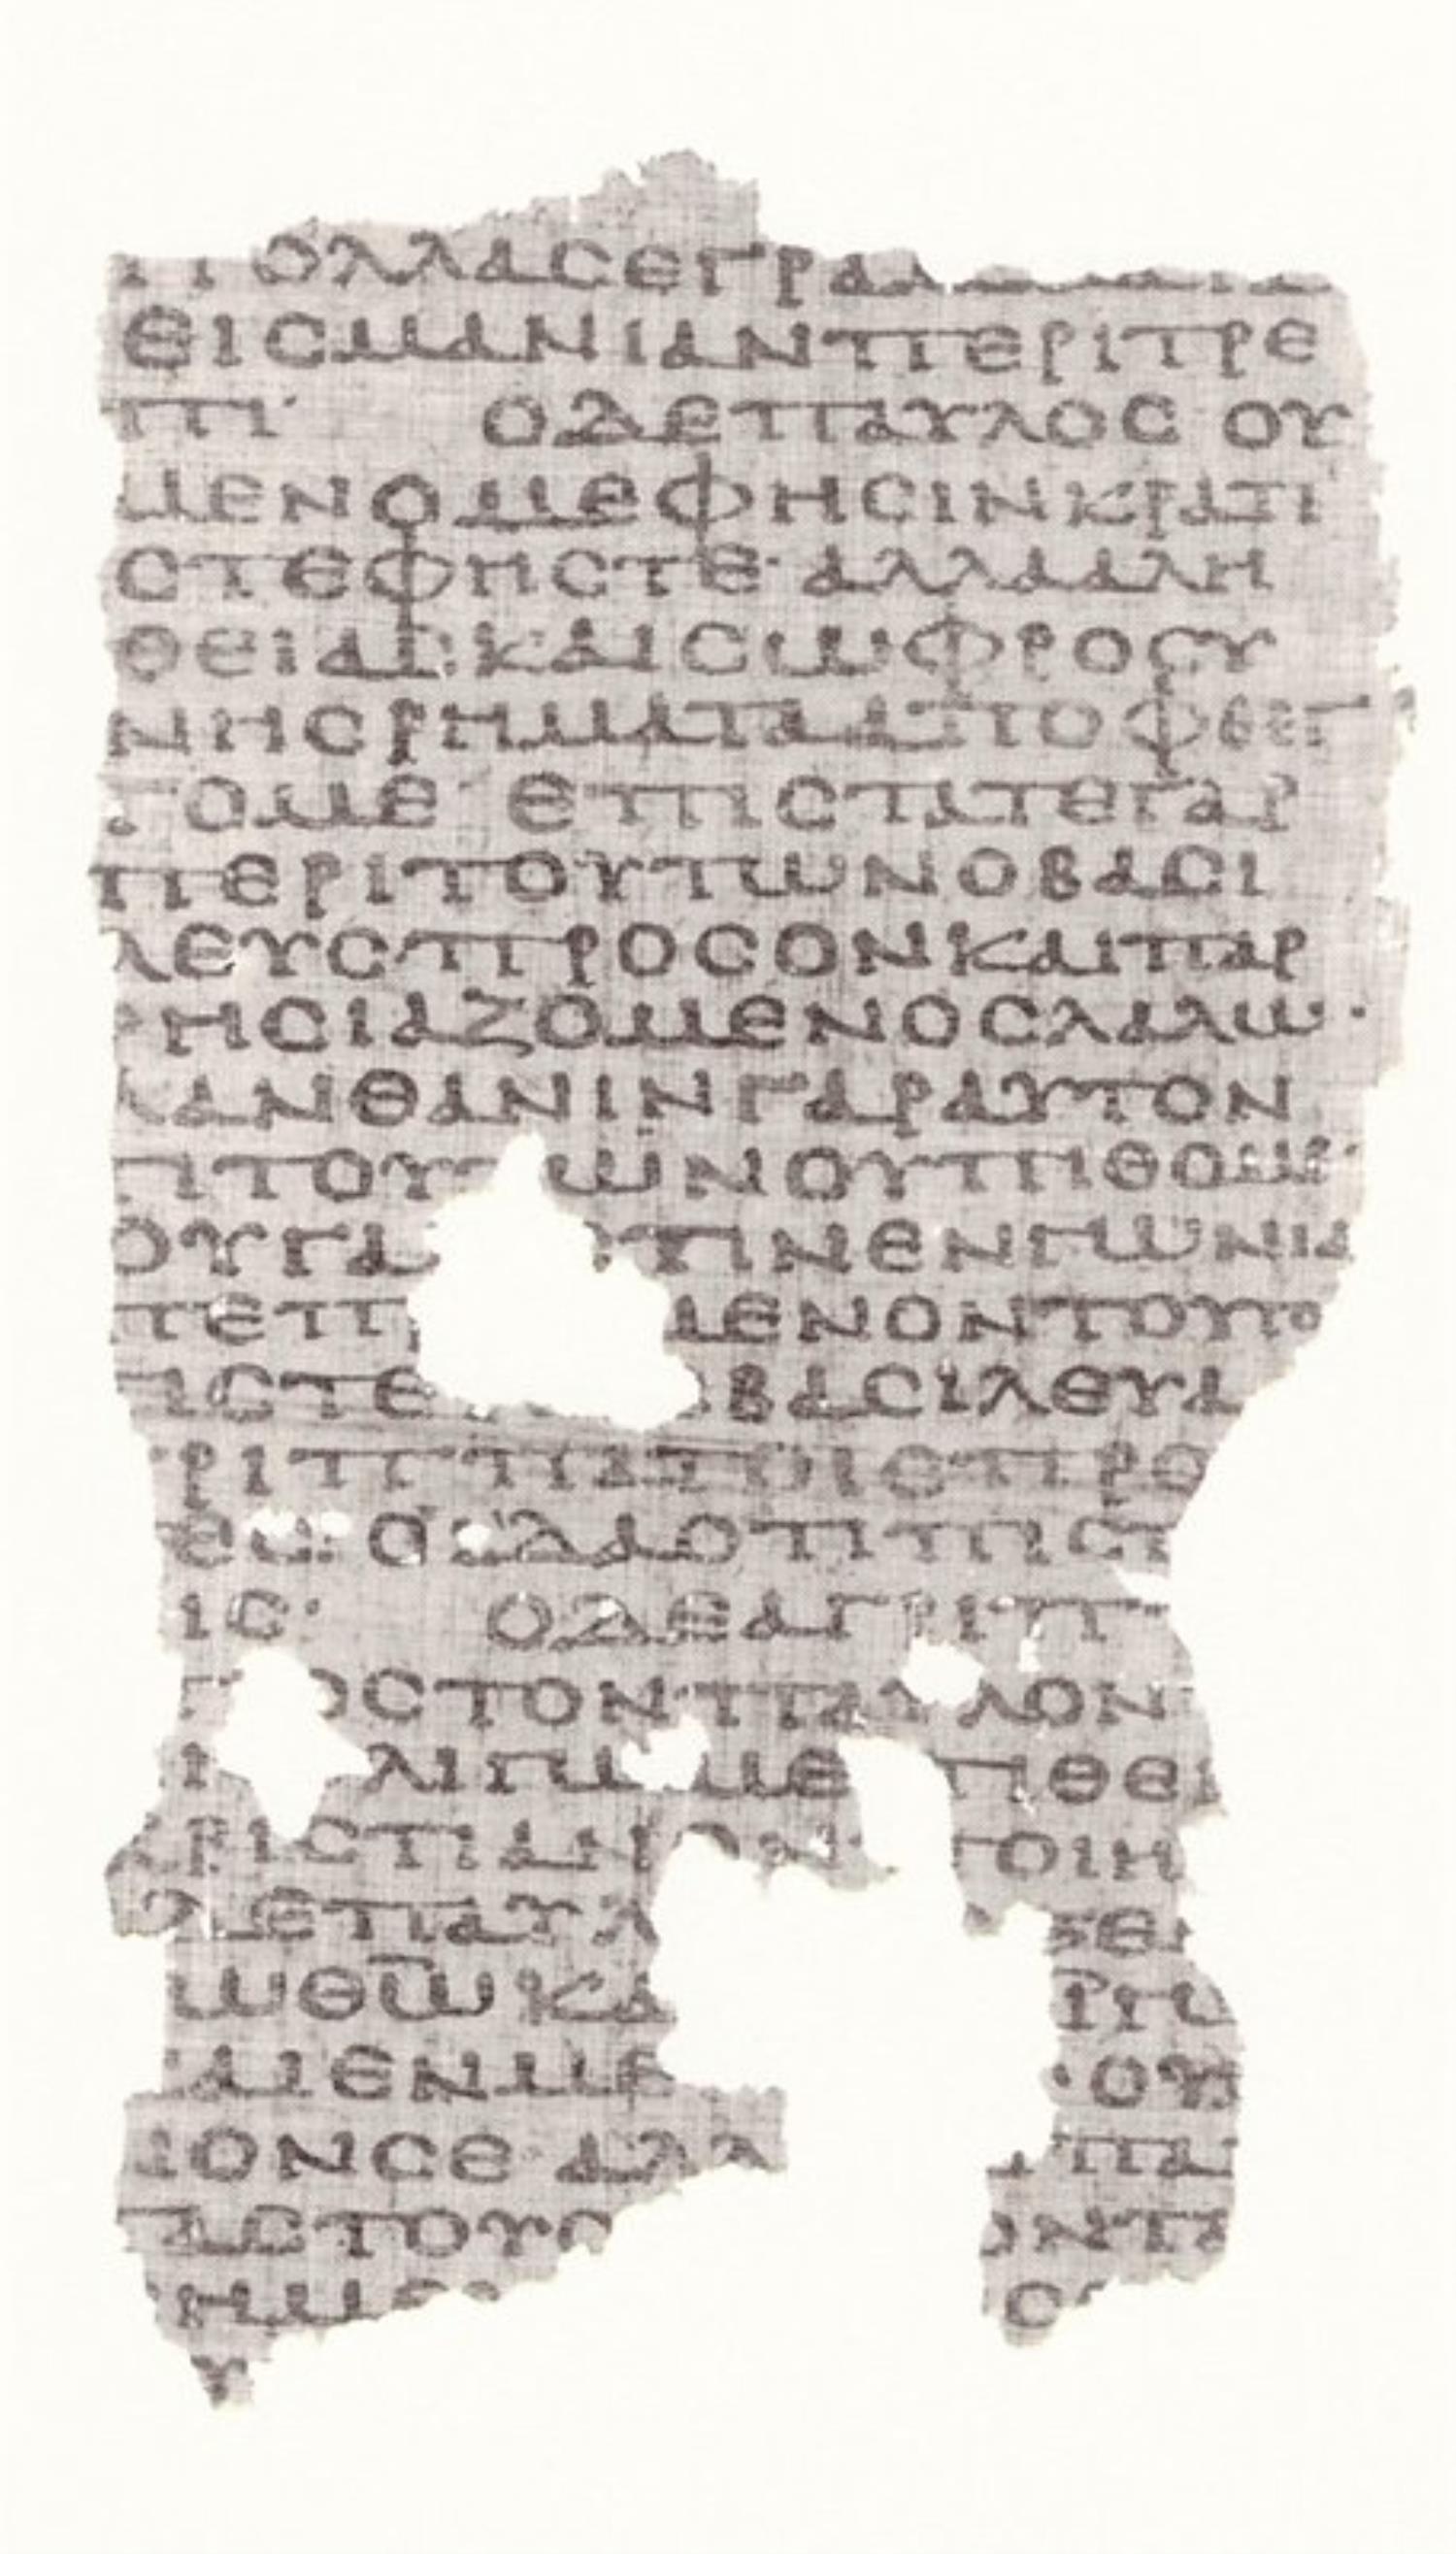 ΠΟΛΛΑΣΕΓΡΑΜΜΑΤΑ
ΕΙϹΜΑΝΙΑΝΠΕΡΙΤΡΕ
ΠΙ· ΟΔΕΠΑΥΛΟϹ ΟΥ
ΜΕΝΟΜΕΦΗϹΙΝΚΡΑΤΙ
ϹΤΕΦΗϹΤΕ· ΑΛΛΑΑΛΗ
ΘΕΙΑϹΚΑΙϹΩΦΡΟϹΥ
ΝΗϹΡΗΜΑΤΑΑΠΟΦΘΕΓ
ΓΟΜΕ ΕΠΙϹΤΑΤΕΓΑΡ
ΠΕΡΙΤΟΥΤΩΝΟΒΑϹΙ
ΛΕΥϹΠΡΟϹΟΝΚΑΙΠΑΡ
ΡΗϹΙΑΖΟΜΕΝΟϹΛΑΛΩ·
ΛΑΝΘΑΝΙΝΓΑΡΑΥΤΟΝ
ΤΙΤΟΥΤΩΝΟΥΠΙΘΟΜΕ·
ΟΥΓΑ ΤΙΝΕΝΓΩΝΙΑ
ΤΕΠ ΜΕΝΟΝΤΟΥΤΟ
ΠΙϹΤΕ ΒΑϹΙΛΕΥΑ
ΓΡΙΠΠΑΤΟΙϹΠΡΟ
ΟΙΔΑΟΤΙΠΙϹΤ
ΙϹ· ΟΔΕΑΓΡΙΠΠ
Π ΟϹΤΟΝΠΑΥΛΟΝ
Ε ΛΙΓΩ ΜΕ ΠΙΘΕΙ
ΧΡΙϹΤΙΑΝΟΝ ΠΟΙΗ
ΔΕΠΑΥΛ ΞΕ
ΩΘΩΚΑ ΓΩ
ΑΙΕΝΜΕ ·ΟΥ
ΝΟΝϹΕ ΑΛΛ ΠΑ
ΤΑϹΤΟΥϹ ΟΝΤΑ
ϹΗΜΕΡ Ο
Υ